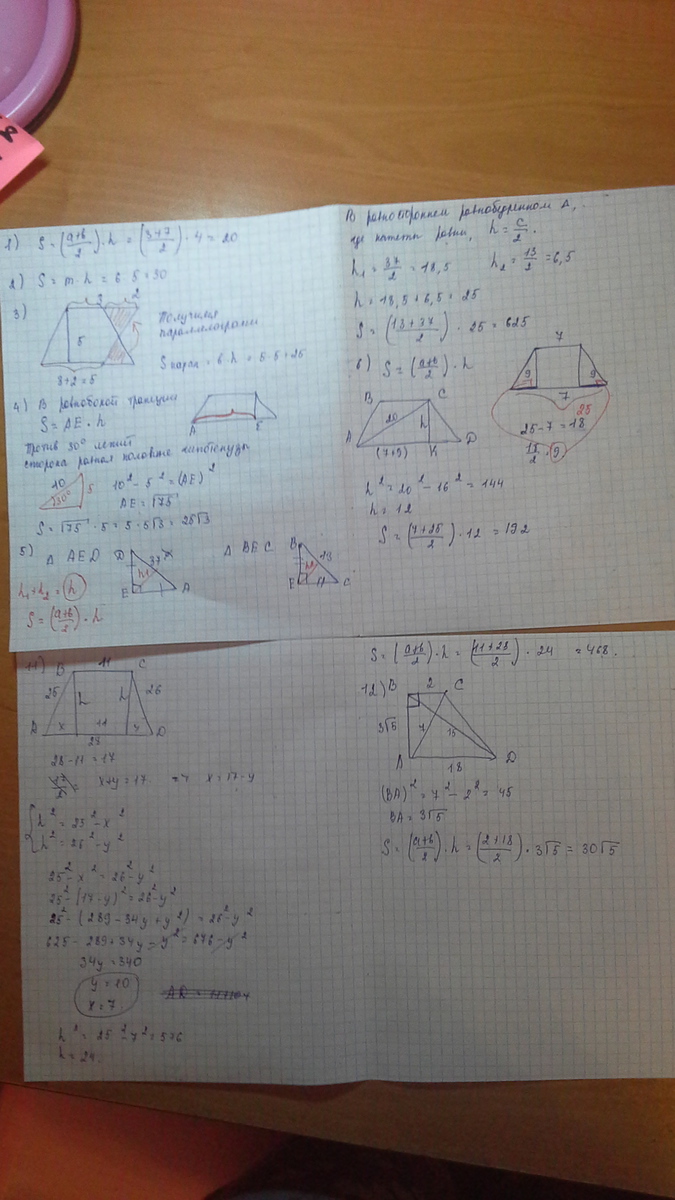 1) S = (a+b/2)·h = (3+7/2)·4 = 20
2) S = m·h = 6·5 = 30
3)
3 2
5
3+2=5
Получился
параллелограмм
S парал = b·h = 5·5 = 25
4) В равнобокой трапеции
S = AE·h
A E
Против 30° лежит
сторона равная половине гипотенузы
10
30°
5
10² - 5² = (AE)²
AE = √75
S = √75·5 = 5·5√3 = 25√3
5) Δ AED
D
37
h1
E A
Δ BEC
B
13
E C
h1 + h2 = h
S = (a+b/2)·h
В равностороннем равнобедренном Δ,
где катеты равны, h = c/2.
h1 = 37/2 = 18,5
h2 = 13/2 = 6,5
h = 18,5 + 6,5 = 25
S = (13+37/2)·25 = 625
6) S = (a+b/2)·h
B C
20 h
A K D
(7+9)
7
9 9
7
25
25-7 = 18
9
h² = 20² - 16² = 144
h = 12
S = (7+25/2)·12 = 192
11) B 11 C
25 h h 26
x 11 y D
28
28-11 = 17
17/2 = x+y = 17. => x = 17-y
h² = 25² - x²
h² = 26² - y²
25² - x² = 26² - y²
25² - (17-y)² = 26² - y²
25² - (289 - 34y + y²) = 26² - y²
625 - 289 + 34y - y² = 676 - y²
34y = 340
y = 10
x = 7
h² = 25² - 7² = 576
h = 24.
S = (a+b/2)·h = (11+28/2)·24 = 468.
12) B 2 C
3√5 7 15
A 18 D
(BA)² = 7² - 2² = 45
BA = 3√5
S = (a+b/2)·h = (2+18/2)·3√5 = 30√5